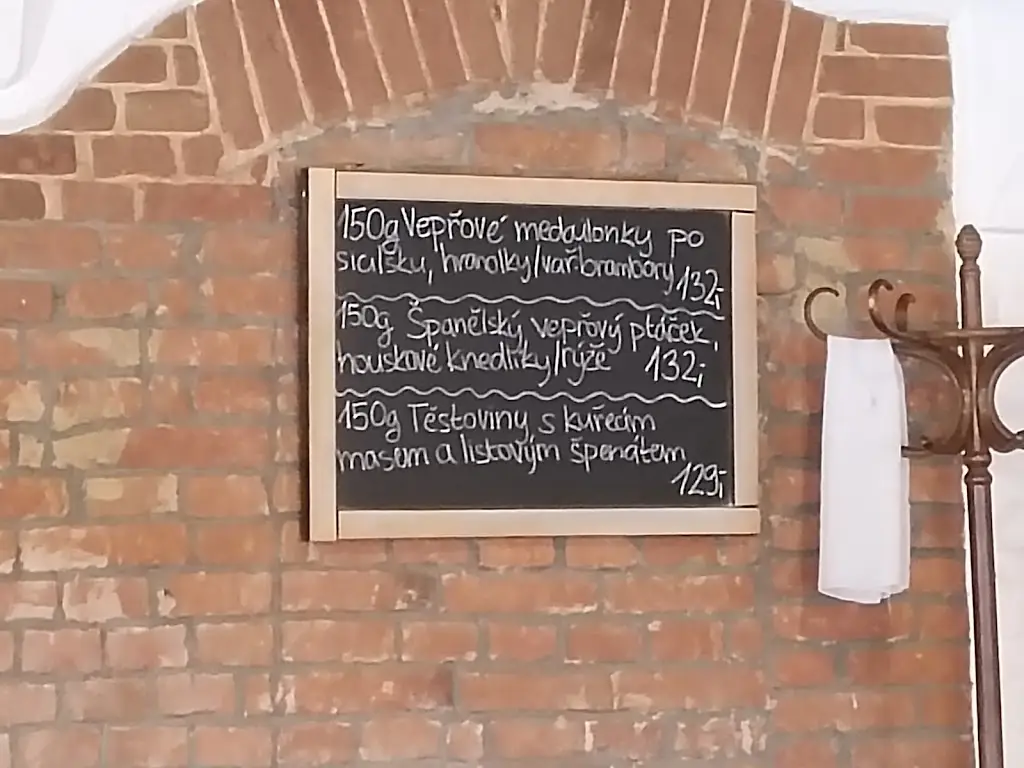 150g Vepřové medailonky po
sicilsku, hranolky/vař.brambory 132,-
150g Španělský vepřový ptáček,
houskové knedlíky/rýže 132,-
150g Těstoviny s kuřecím
masem a listovým špenátem
129,-